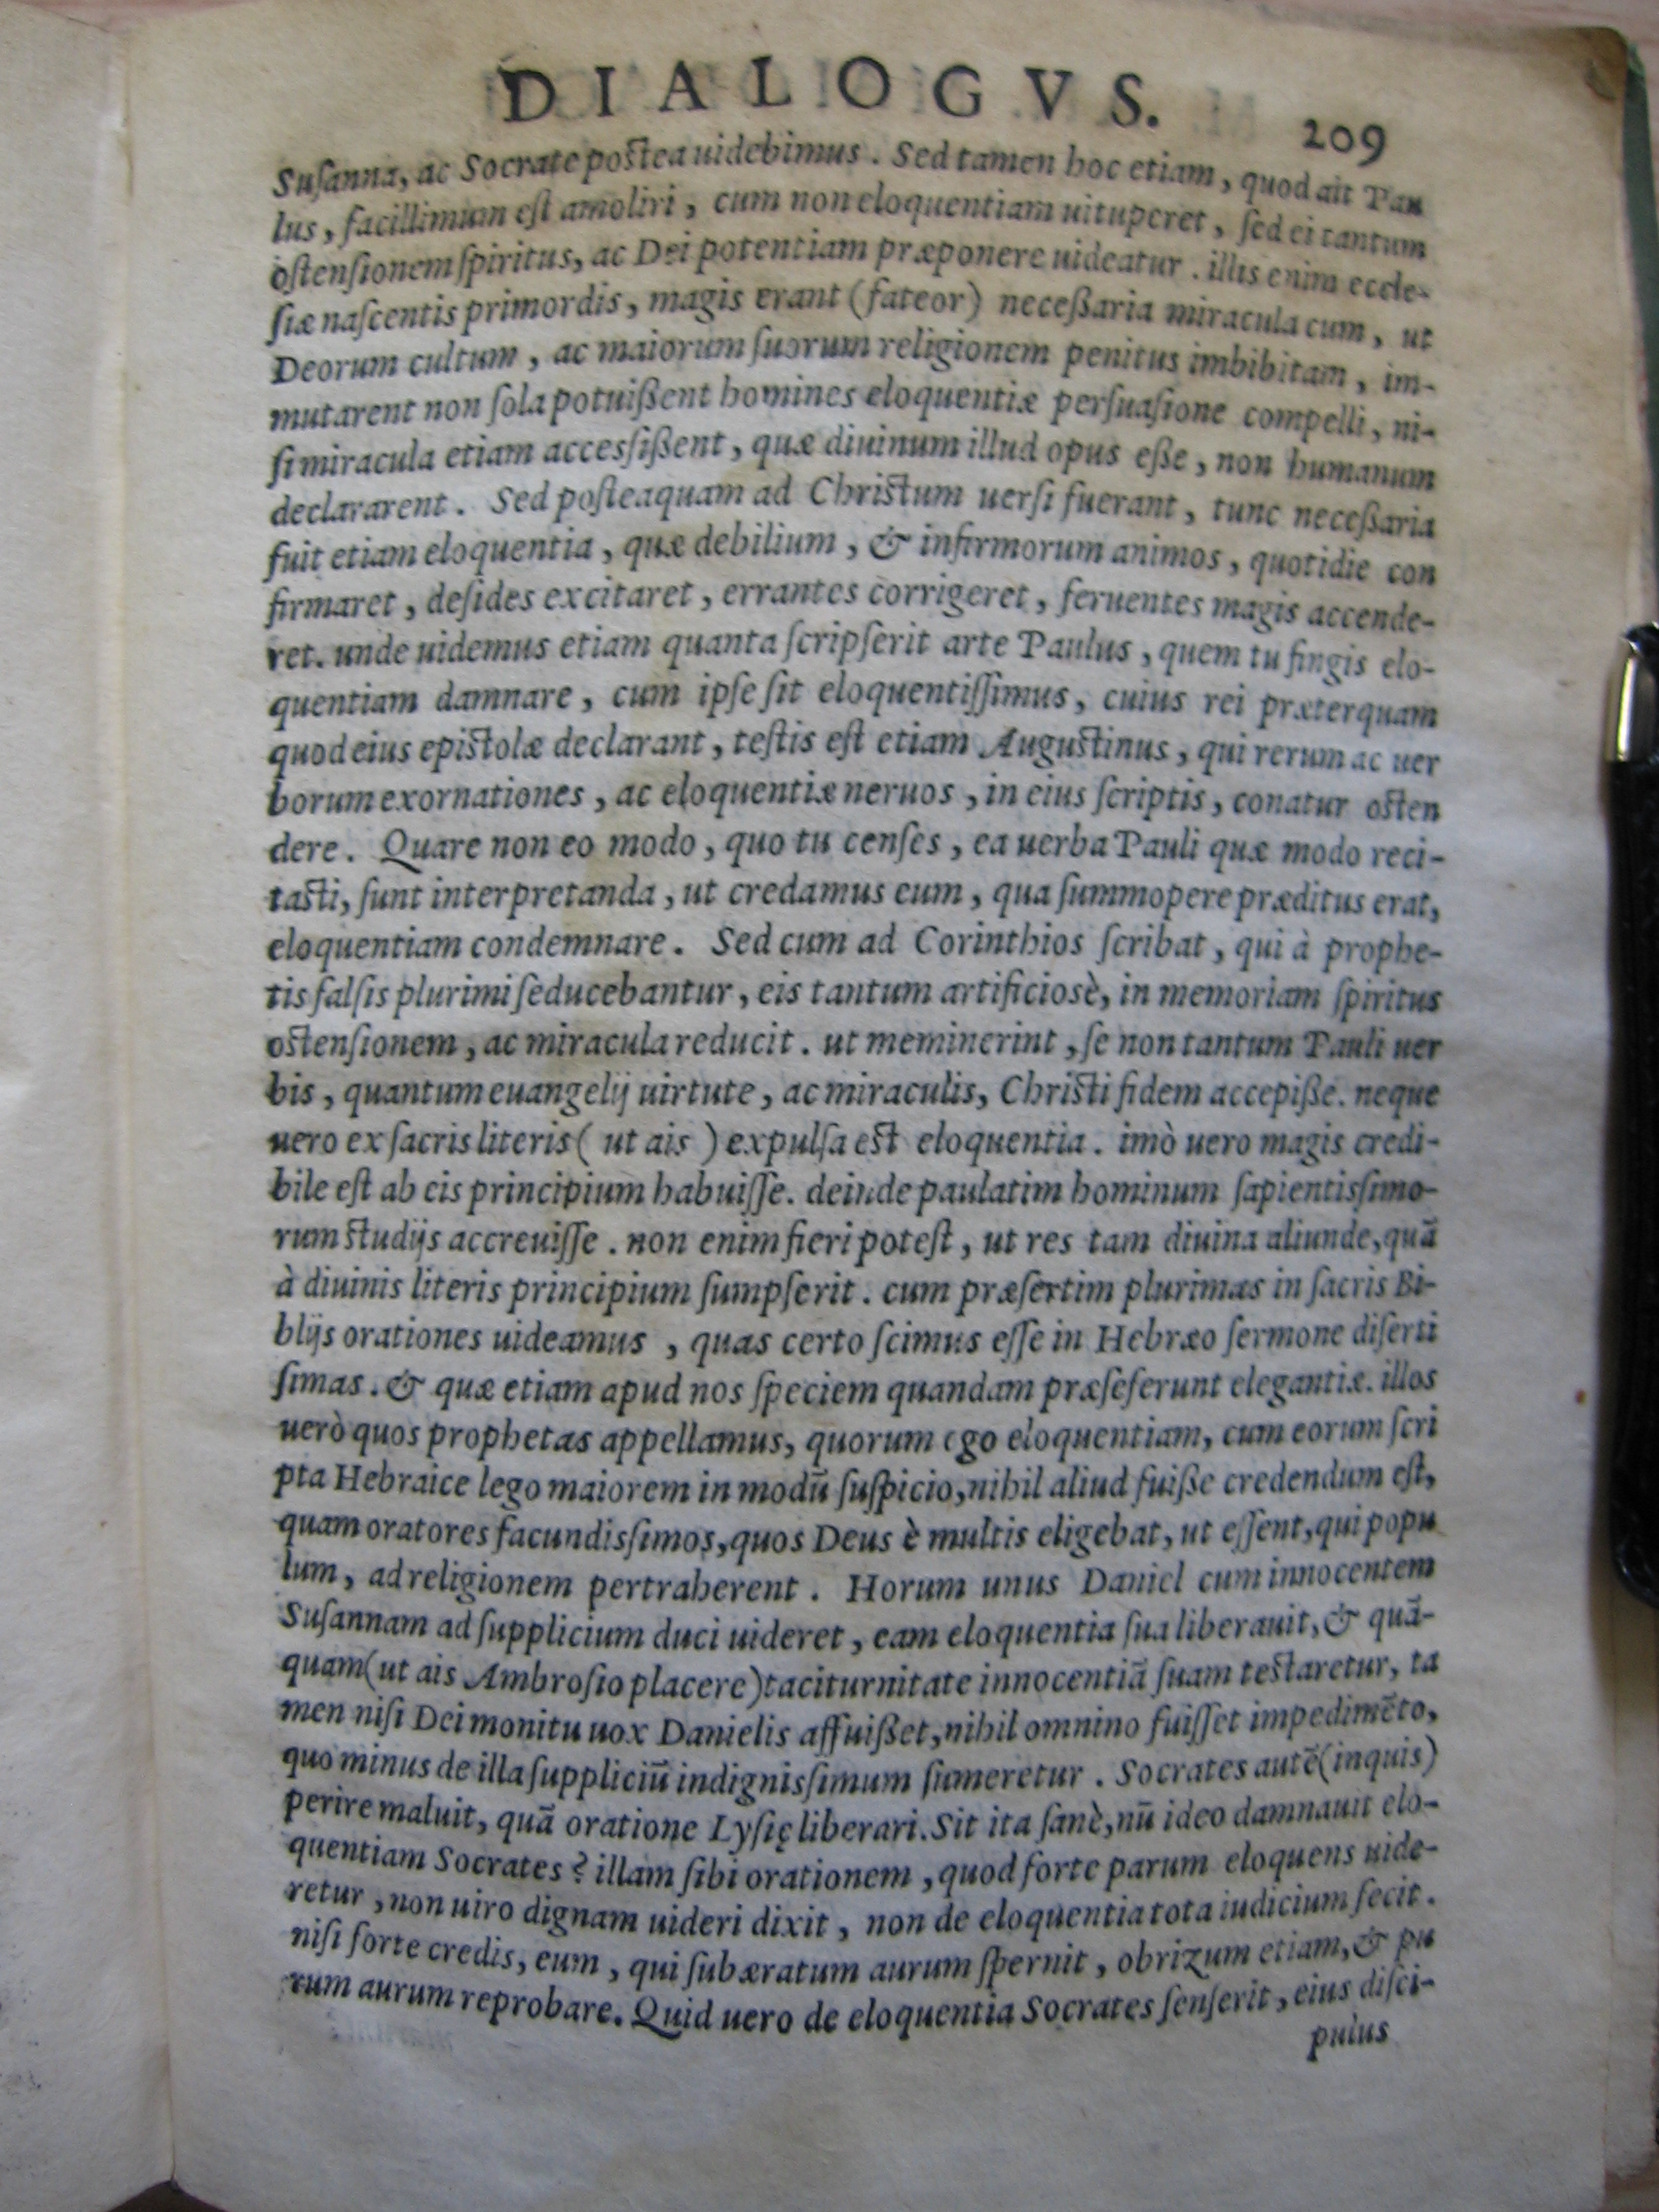 DIALOGVS.
209
Suſanna, ac Socrate poſtea uidebimus. Sed tamen hoc etiam, quod ait Pau
lus, facillimum eſt amoliri, cum non eloquentiam uituperet, ſed ei tantum
oſtenſionem ſpiritus, ac Dei potentiam præponere uideatur. illis enim eccle-
ſiæ naſcentis primordis, magis erant (fateor) neceßaria miracula cum, ut
Deorum cultum, ac maiorum ſuorum religionem penitus imbibitam, im-
mutarent non ſola potuißent homines eloquentiæ perſuaſione compelli, ni-
ſi miracula etiam acceſſißent, quæ diuinum illud opus eße, non humanum
declararent. Sed poſteaquam ad Chriſtum uerſi fuerant, tunc neceßaria
fuit etiam eloquentia, quæ debilium, & infirmorum animos, quotidie con
firmaret, deſides excitaret, errantes corrigeret, feruentes magis accende-
ret. unde uidemus etiam quanta ſcripſerit arte Paulus, quem tu fingis elo-
quentiam damnare, cum ipſe ſit eloquentiſſimus, cuius rei præterquam
quod eius epiſtolæ declarant, teſtis eſt etiam Auguſtinus, qui rerum ac uer
borum exornationes, ac eloquentiæ neruos, in eius ſcriptis, conatur oſten
dere. Quare non eo modo, quo tu cenſes, ea uerba Pauli quæ modo reci-
taſti, ſunt interpretanda, ut credamus eum, qua ſummopere præditus erat,
eloquentiam condemnare. Sed cum ad Corinthios ſcribat, qui à prophe-
tis falſis plurimi ſeducebantur, eis tantum artificiosè, in memoriam ſpiritus
oſtenſionem, ac miracula reducit. ut meminerint, ſe non tantum Pauli uer
bis, quantum euangelij uirtute, ac miraculis, Chriſti fidem accepiße. neque
uero ex ſacris literis (ut ais) expulſa eſt eloquentia. imò uero magis credi-
bile eſt ab eis principium habuiſſe. deinde paulatim hominum ſapientiſſimo-
rum ſtudijs accreuiſſe. non enim fieri poteſt, ut res tam diuina aliunde, quā
à diuinis literis principium ſumpſerit. cum præſertim plurimas in ſacris Bi-
blijs orationes uideamus, quas certo ſcimus eſſe in Hebræo ſermone diſerti
ſimas. & quæ etiam apud nos ſpeciem quandam præſeferunt elegantiæ. illos
uerò quos prophetas appellamus, quorum ego eloquentiam, cum eorum ſcri
pta Hebraice lego maiorem in modū ſuſpicio, nihil aliud fuiße credendum eſt,
quam oratores facundiſſimos, quos Deus è multis eligebat, ut eſſent, qui popu
lum, ad religionem pertraherent. Horum unus Daniel cum innocentem
Suſannam ad ſupplicium duci uideret, eam eloquentia ſua liberauit, & quā-
quam (ut ais Ambroſio placere) taciturnitate innocentiā ſuam teſtaretur, ta
men niſi Dei monitu uox Danielis affuißet, nihil omnino fuiſſet impedimēto,
quo minus de illa ſuppliciū indigniſſimum ſumeretur. Socrates autē (inquis)
perire maluit, quā oratione Lyſię liberari. Sit ita ſanè, nū ideo damnauit elo-
quentiam Socrates? illam ſibi orationem, quod forte parum eloquens uide-
retur, non uiro dignam uideri dixit, non de eloquentia tota iudicium fecit.
niſi forte credis, eum, qui ſubæratum aurum ſpernit, obrizum etiam, & pu
rum aurum reprobare. Quid uero de eloquentia Socrates ſenſerit, eius diſci-
pulus